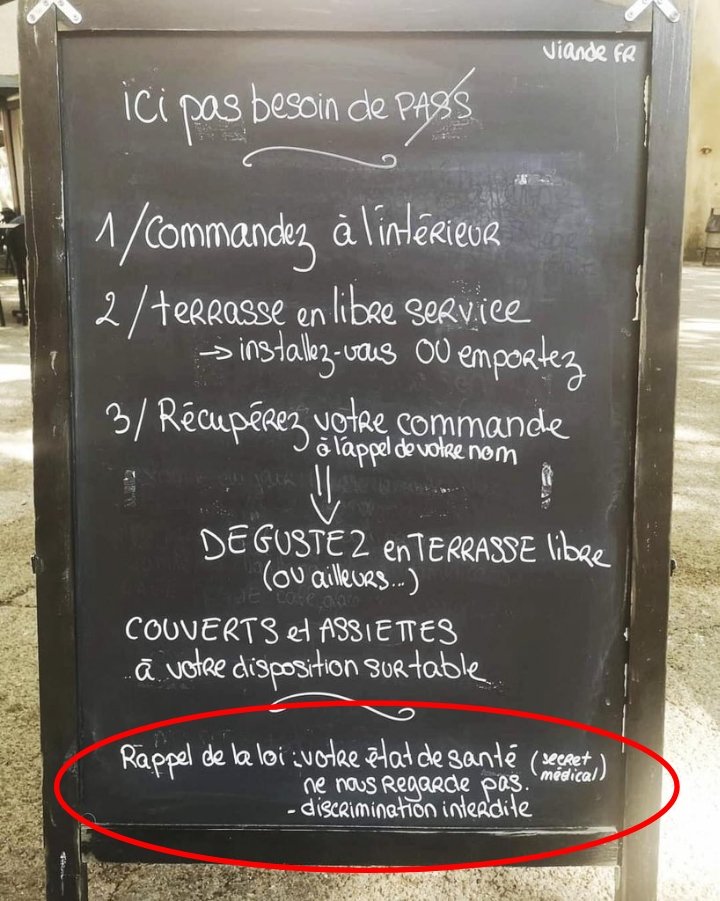 Viande FR
ici pas besoin de PASS
1/Commandez à l'intérieur
2/terrasse en libre service
→ installez-vous OU emportez
3/Récupérez votre commande
à l'appel de votre nom
DEGUSTEZ en TERRASSE libre
(ou ailleurs...)
COUVERTS et ASSIETTES
à votre disposition sur table
Rappel de la loi : votre état de santé (secret
ne nous regarde pas. médical)
- discrimination interdite